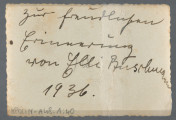 Zur freudlichen
Erinnerung
von Elli
1936.